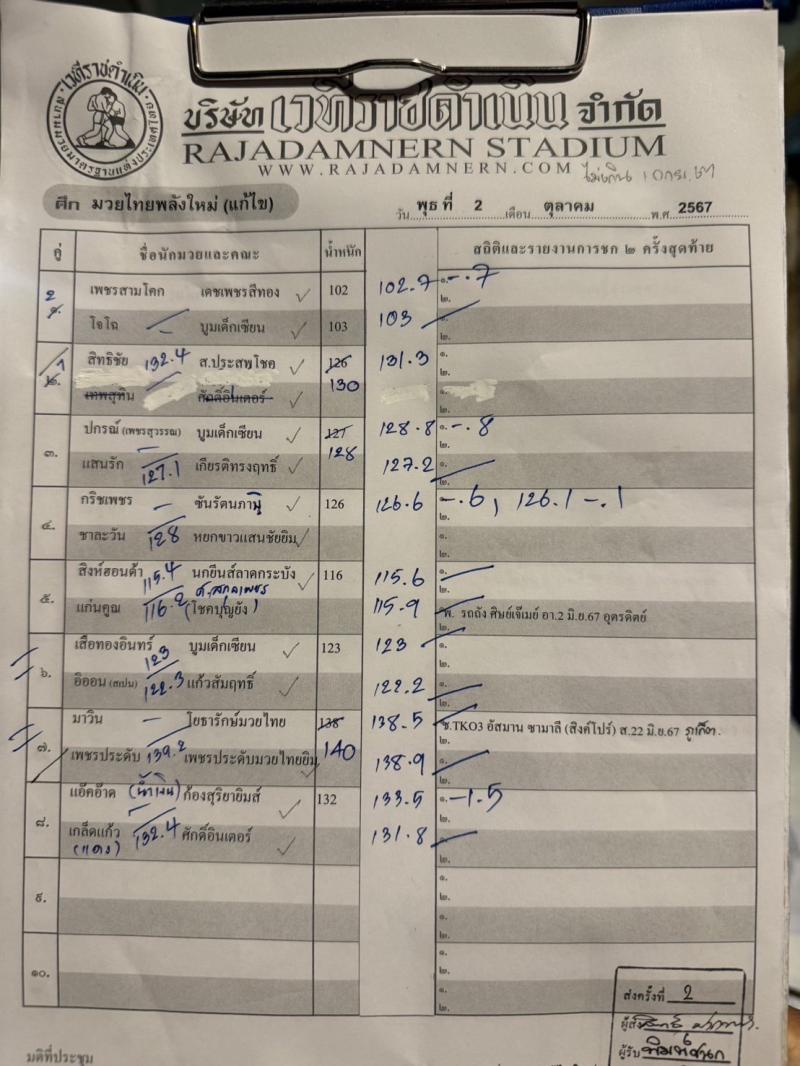 เวทีราชดำเนิน
บริษัท เวทีราชดำเนิน จำกัด
RAJADAMNERN STADIUM
WWW.RAJADAMNERN.COM
ศึก มวยไทยพลังใหม่ (แก้ไข)
วัน พุธ ที่ 2 เดือน ตุลาคม พ.ศ 2567
คู่ ชื่อนักมวยและคณะ น้ำหนัก สถิติและรายงานการชก ๒ ครั้งสุดท้าย
2 เพชรสามโคก เดชเพชรสีทอง 102 102.7 ๑. -.7
๒.
โจโฉ บูมเด็กเซียน 103 103 ๑.
๒.
1 ๒. สิทธิชัย 132.4 ส.ประสพโชค 126 131.3 ๑.
๒.
เทพสุทิน ศักดิ์อินเตอร์ 130
๒.
๓. ปกรณ์ (เพชรสุวรรณ) บูมเด็กเซียน 127 128.8 ๑. -.8
128 ๒.
แสนรัก 127.1 เกียรติทรงฤทธิ์ 127.2 ๑.
๒.
๔. กริชเพชร ซันรัตนภานุ 126 126.6 ๑. -.6, 126.1 -.1
๒.
ชาละวัน 128 หยกขาวแสนชัยยิม ๑.
๒.
๕. สิงห์ฮอนด้า 115.4 นกยีนส์ลาดกระบัง 116 115.6 ๑.
๒.
แก่นคูณ 116.2 (โชคบุญยัง) 115.9 พ. รถถัง ศิษย์เจ๊เมย์ อา.2 มิ.ย.67 อุตรดิตย์
๒.
๖. เสือทองอินทร์ 123 บูมเด็กเซียน 123 123 ๑.
๒.
อิออน (สเปน) 122.3 แก้วสัมฤทธิ์ 122.2 ๑.
๒.
๗. มาวิน โยธารักษ์มวยไทย 138 138.5 ช.TKO3 อัสมาน ซามาลี (สิงค์โปร์) ส.22 มิ.ย.67 ภูเก็ต.
140 ๒.
เพชรประดับ 139.2 เพชรประดับมวยไทยยิม 138.9 ๑.
๒.
๘. แย๊คอ๊าด (น้ำเงิน) ก้องสุริยายิมส์ 132 133.5 ๑. -1.5
๒.
เกล็ดแก้ว 132.4 ศักดิ์อินเตอร์ 131.8 ๑.
(แดง) ๒.
๙. ๑.
๒.
๑.
๒.
๑๐. ๑.
๒.
๑.
๒.
ส่งครั้งที่ 2
ผู้ส่ง
ผู้รับ พิมพ์ชนก
มติที่ประชุม